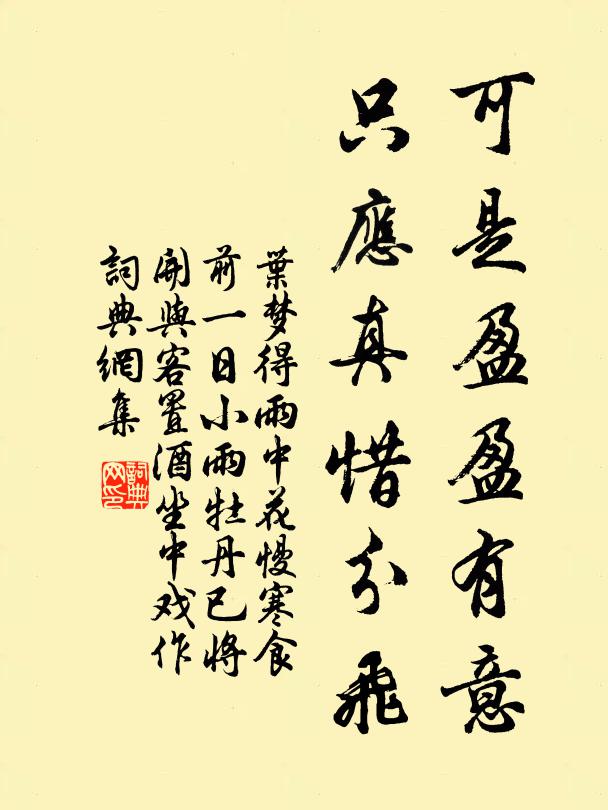 可是盈盈有意
只應真惜分飛
葉梦得雨中花慢寒食
前一日小雨牡丹已將
開與客置酒坐中戏作
詞典網集
詞典
网印